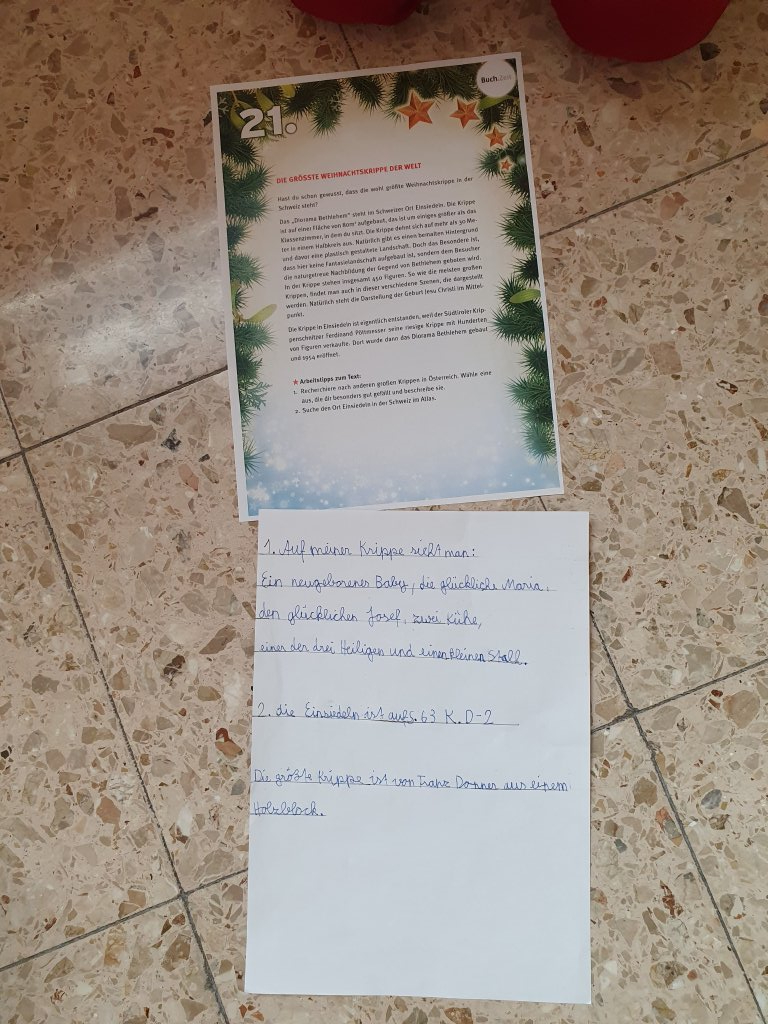 Buch.Zeit
21.
DIE GRÖSSTE WEIHNACHTSKRIPPE DER WELT
Hast du schon gewusst, dass die wohl größte Weihnachtskrippe in der
Schweiz steht?
Das „Diorama Bethlehem" steht im Schweizer Ort Einsiedeln. Die Krippe
ist auf einer Fläche von aufgebaut, das ist um einiges größer als das
Klassenzimmer, in dem du sitzt. Die Krippe dehnt sich auf mehr als 30 Me-
ter in einem Halbkreis aus. Natürlich gibt es einen bemalten Hintergrund
und davor eine plastisch gestaltete Landschaft. Doch das Besondere ist,
dass hier keine Fantasielandschaft aufgebaut ist, sondern dem Besucher
die naturgetreue Nachbildung der Gegend von Bethlehem geboten wird.
In der Krippe stehen insgesamt 450 Figuren. So wie die meisten großen
Krippen, findet man auch in dieser verschiedene Szenen, die dargestellt
werden. Natürlich steht die Darstellung der Geburt Jesu Christi im Mittel-
punkt.
Die Krippe in Einsiedeln ist eigentlich entstanden, weil der Südtiroler Krip-
penschnitzer Ferdinand Pöttmesser seine riesige Krippe mit Hunderten
von Figuren verkaufte. Dort wurde dann das Diorama Bethlehem gebaut
und 1954 eröffnet.
Arbeitstipps zum Text:
1. Recherchiere nach anderen großen Krippen in Österreich. Wähle eine
aus, die dir besonders gut gefällt und beschreibe sie.
2. Suche den Ort Einsiedeln in der Schweiz im Atlas.
1. Auf meiner Krippe sieht man:
Ein neugeborenes Baby, die glückliche Maria,
den glücklichen Josef, zwei Kühe,
einer der drei Heiligen und einen kleinen Stall.
2. die Einsiedeln ist auf S. 63 K. D-2
Die größte Krippe ist von Franz Donner aus einem
Holzblock.